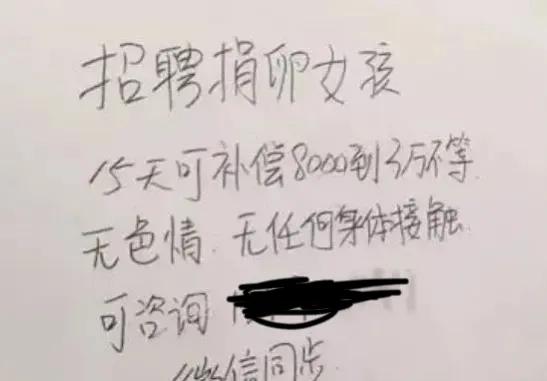 招聘捐卵女孩
15天可补偿8000到3万不等
无色情.无任何身体接触
可咨询
微信同步